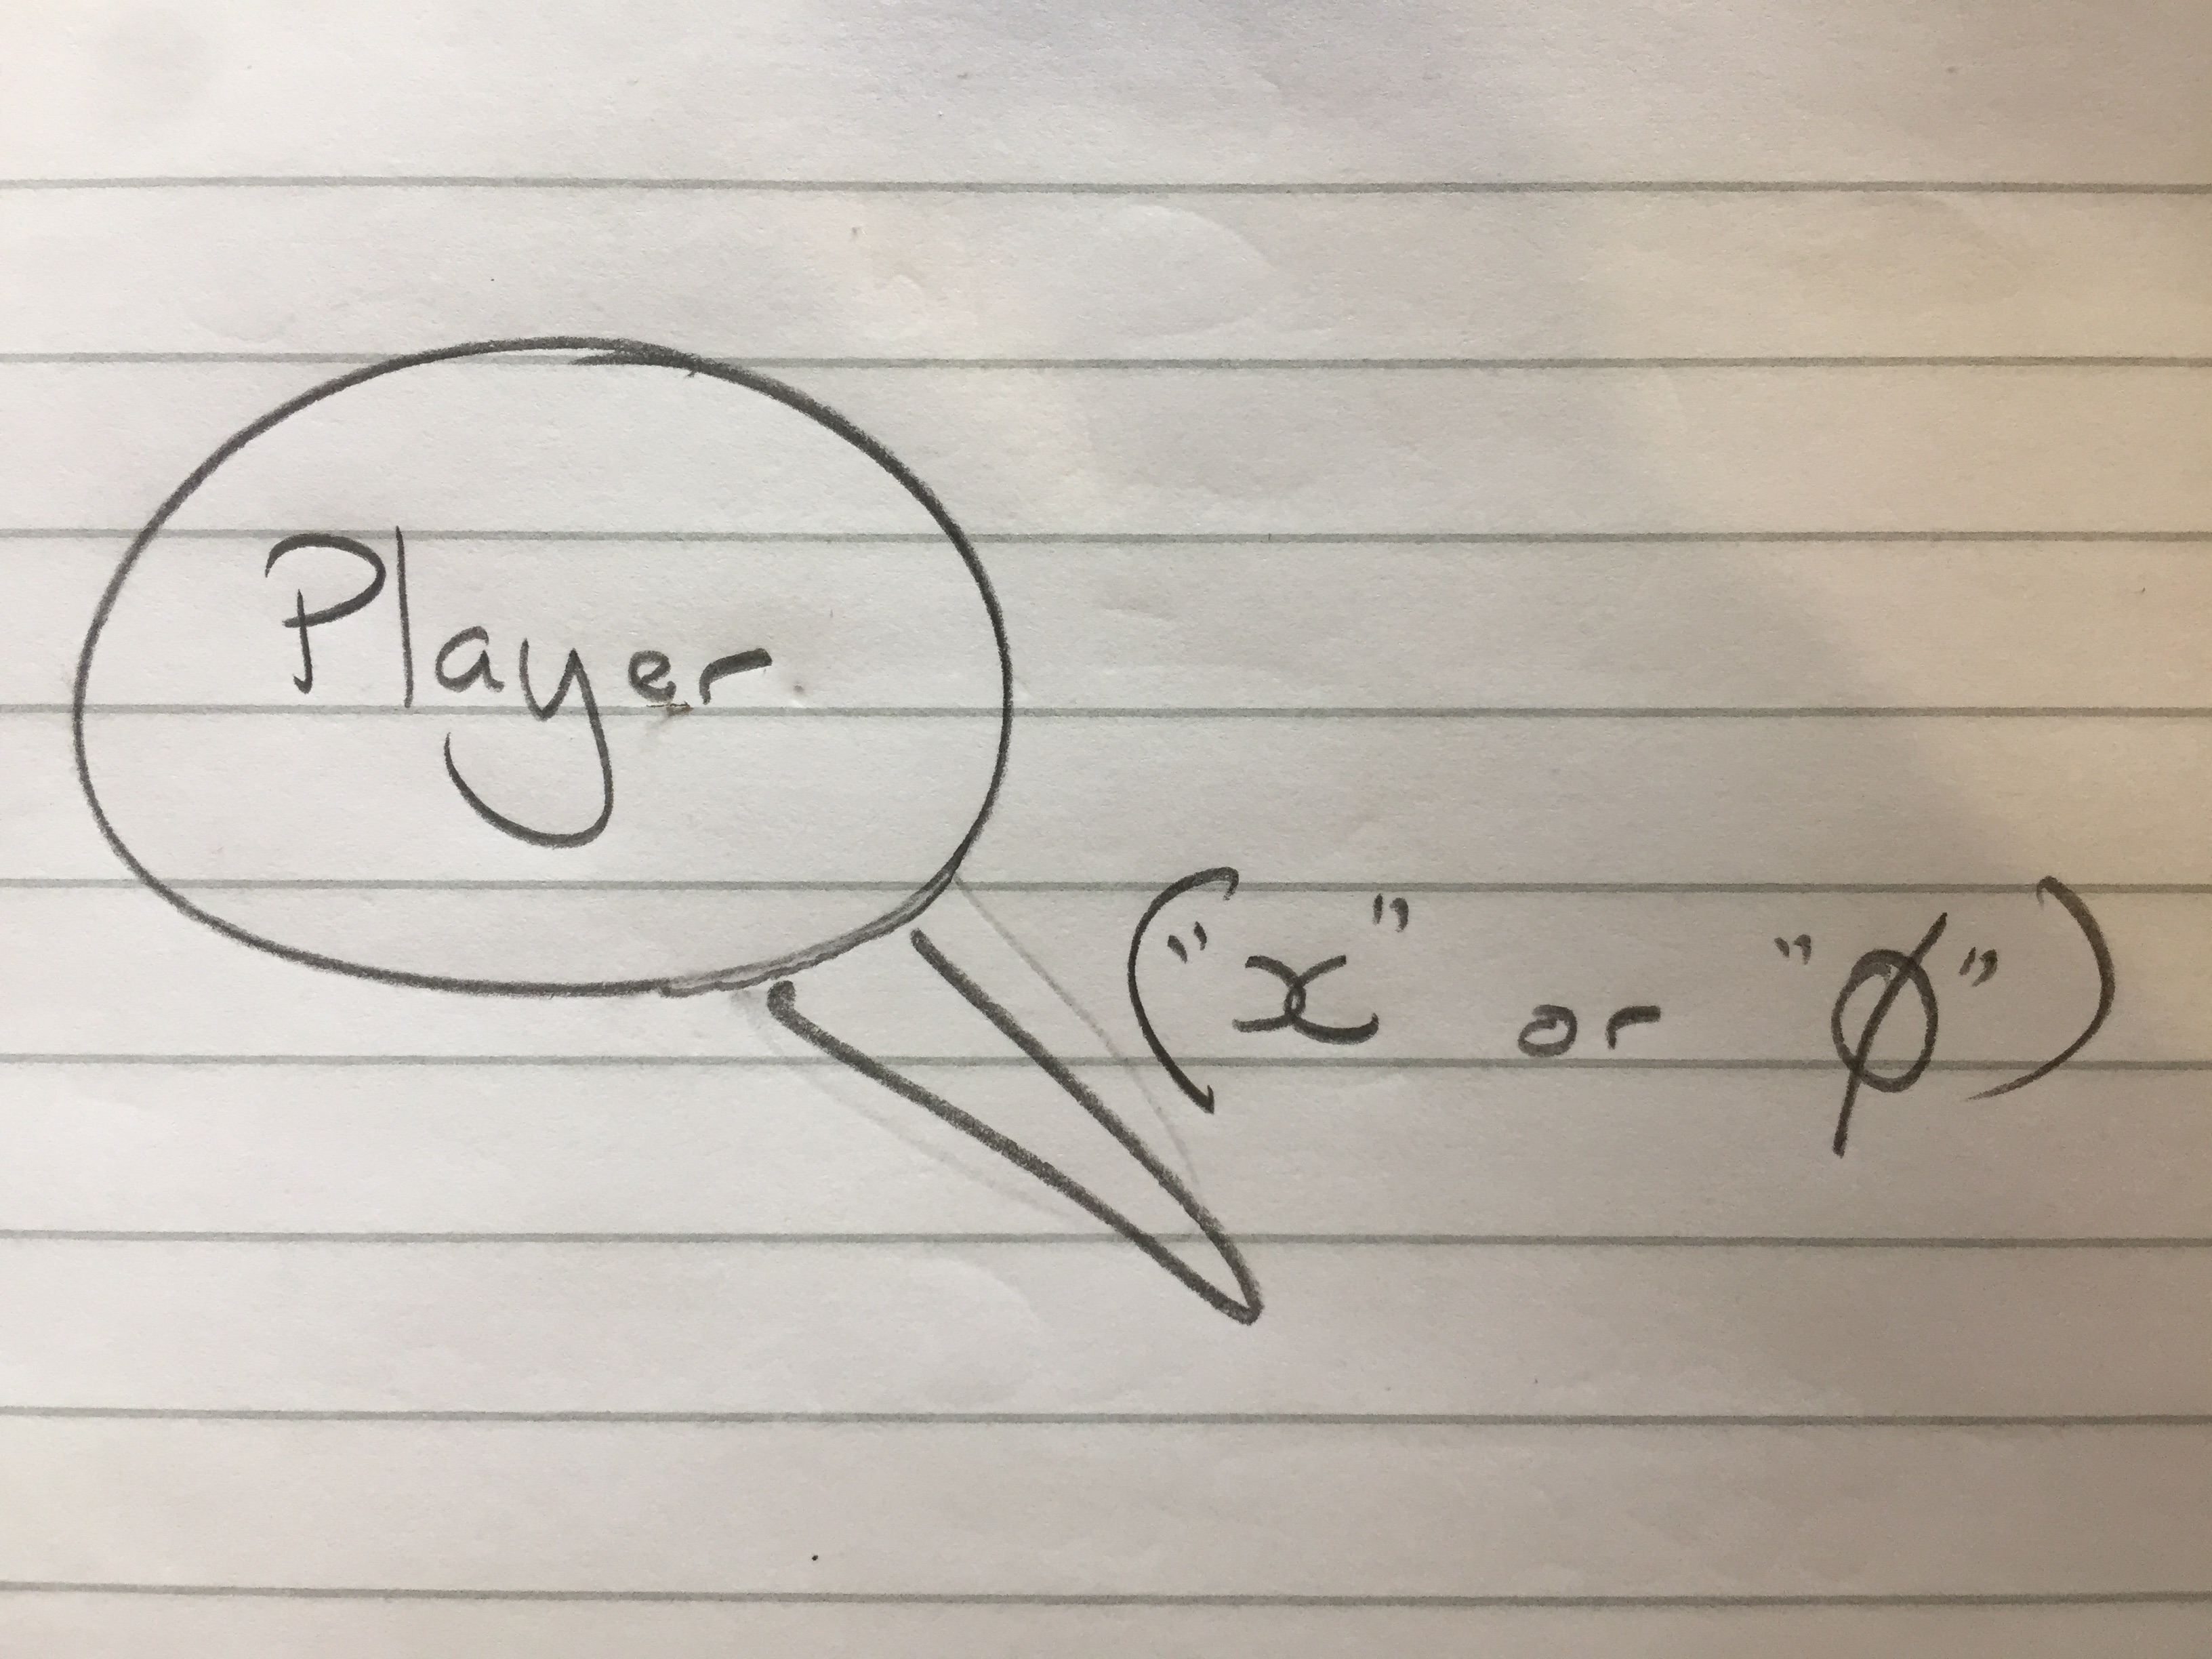 Player
("x" or "Ø")